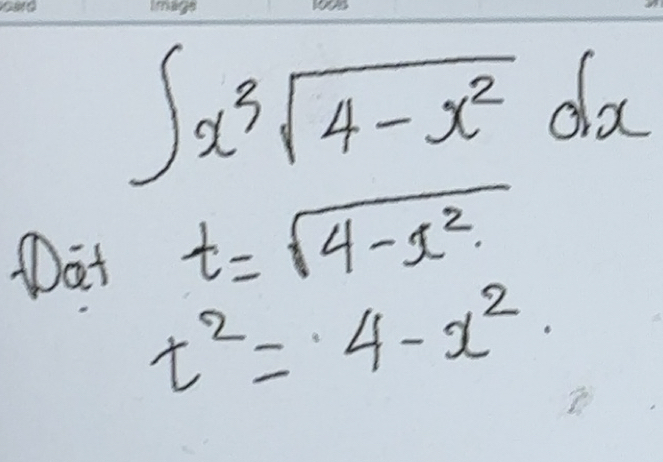 Image
Tools
∫x³√(4-x²) dx
Đặt t = √(4-x².)
t² = 4-x².